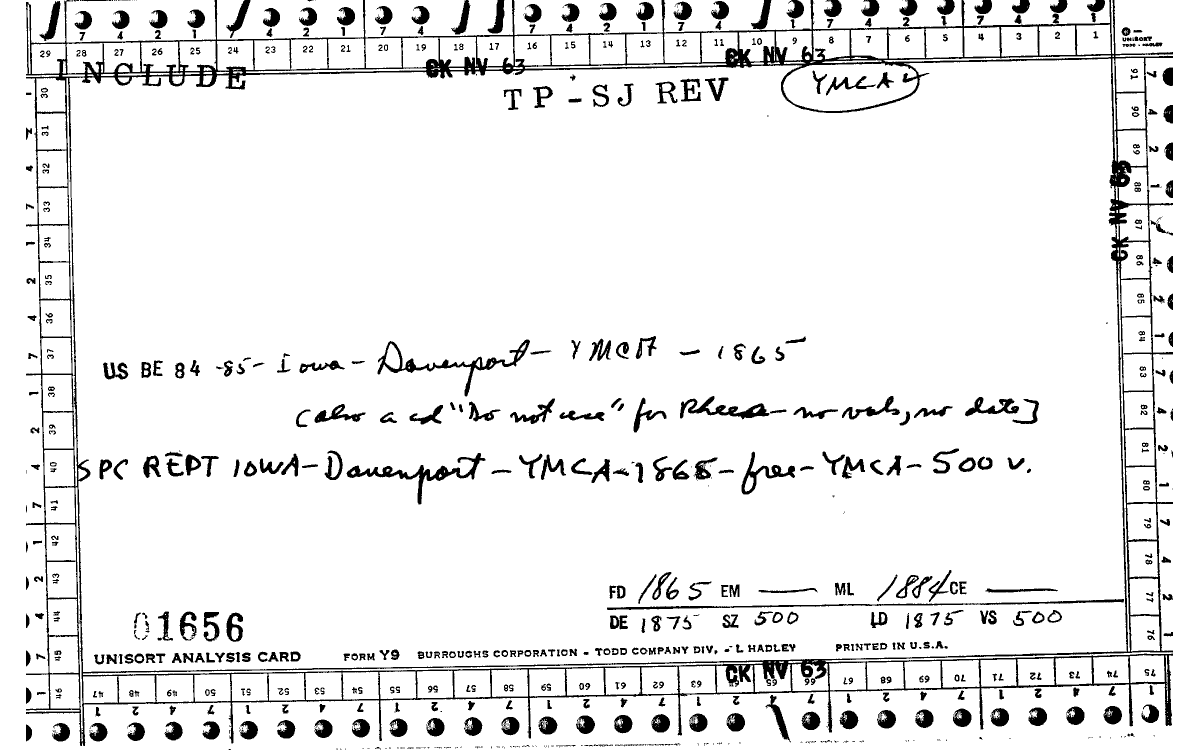 7 4 2 1 7 4 2 1 7 4 2 1 7 4 2 1 7 4 2 1
29 28 27 26 25 24 23 22 21 20 19 18 17 16 15 14 13 12 11 10 9 8 7 6 5 4 3 2 1
UNISORT
TODD - HADLEY
INCLUDE CK NV 63 CK NV 63
TP-SJ REV YMCA
CK NV 63
30 31 32 33 34 35 36 37 38 39 40 41 42 43 44 45 46
91 90 89 88 87 86 85 84 83 82 81 80 79 78 77 76
US BE 84 -85- Iowa - Davenport - YMCA - 1865
(also a cd "Do not use" for Rheea - no vols, no date]
SPC REPT IOWA - Davenport - YMCA - 1865 - free - YMCA - 500 v.
FD 1865 EM — ML 1884 CE —
DE 1875 SZ 500 LD 1875 VS 500
01656
UNISORT ANALYSIS CARD FORM Y9 BURROUGHS CORPORATION - TODD COMPANY DIV. - L HADLEY PRINTED IN U.S.A.
CK NV 63
47 48 49 50 51 52 53 54 55 56 57 58 59 60 61 62 63 64 65 66 67 68 69 70 71 72 73 74 75